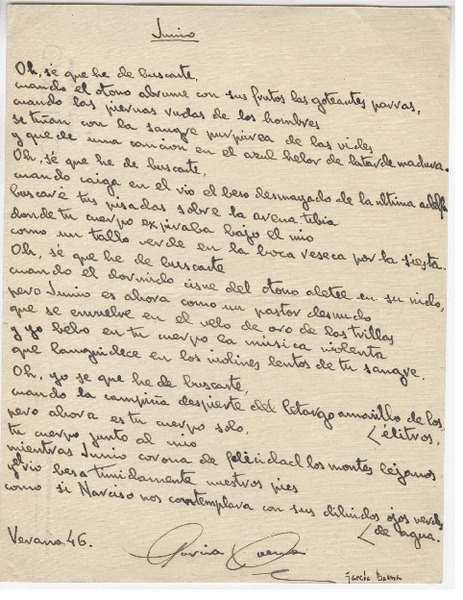 Junio
Oh, sé que he de buscarte,
cuando el otoño abrume con sus frutos las goteantes parras,
cuando las piernas rudas de los hombres
se tiñan con la sangre purpúrea de las vides
y quede una canción en el azul helor de la tarde madura.
Oh, sé que he de buscarte,
cuando caiga en el río el beso desmayado de la última adelfa
buscaré tus pisadas sobre la avena tibia
donde tu cuerpo expiraba bajo el mío
como un tallo verde en la boca reseca por la siesta.
Oh, sé que he de buscarte
cuando el dormido cisne del otoño aletee en su nido,
pero Junio es ahora como un pastor desnudo
que se envuelve en el velo de oro de las trillas
y yo bebo en tu cuerpo la música violenta
que languidece en los violines lentos de tu sangre.
Oh, yo se que he de buscarte,
cuando la campiña despierte del letargo amarillo de los
élitros,
pero ahora es tu cuerpo solo,
tu cuerpo junto al mío
mientras Junio corona de felicidad los montes lejanos
y el río besa tímidamente nuestros pies
como si Narciso nos contemplara con sus diluidos ojos verdes
de agua.
Verano 46.
García Baena
García Baena